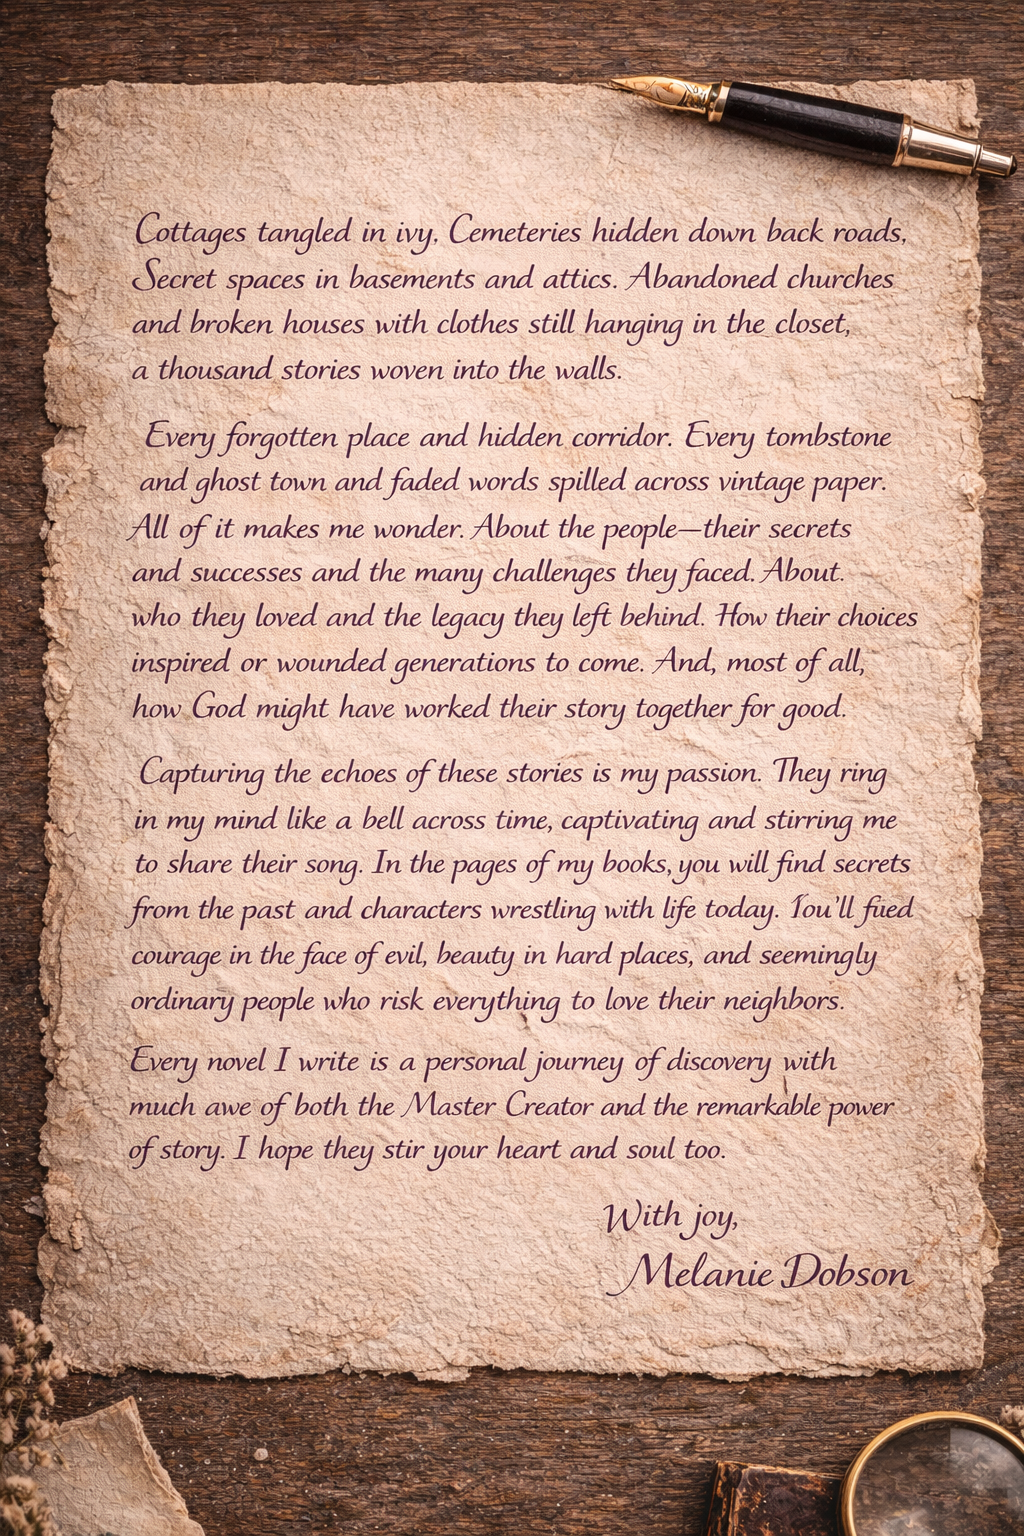 Cottages tangled in ivy, Cemeteries hidden down back roads,
Secret spaces in basements and attics. Abandoned churches
and broken houses with clothes still hanging in the closet,
a thousand stories woven into the walls.
Every forgotten place and hidden corridor. Every tombstone
and ghost town and faded words spilled across vintage paper.
All of it makes me wonder. About the people—their secrets
and successes and the many challenges they faced. About.
who they loved and the legacy they left behind. How their choices
inspired or wounded generations to come. And, most of all,
how God might have worked their story together for good.
Capturing the echoes of these stories is my passion. They ring
in my mind like a bell across time, captivating and stirring me
to share their song. In the pages of my books, you will find secrets
from the past and characters wrestling with life today. You'll fued
courage in the face of evil, beauty in hard places, and seemingly
ordinary people who risk everything to love their neighbors.
Every novel I write is a personal journey of discovery with
much awe of both the Master Creator and the remarkable power
of story. I hope they stir your heart and soul too.
With joy,
Melanie Dobson